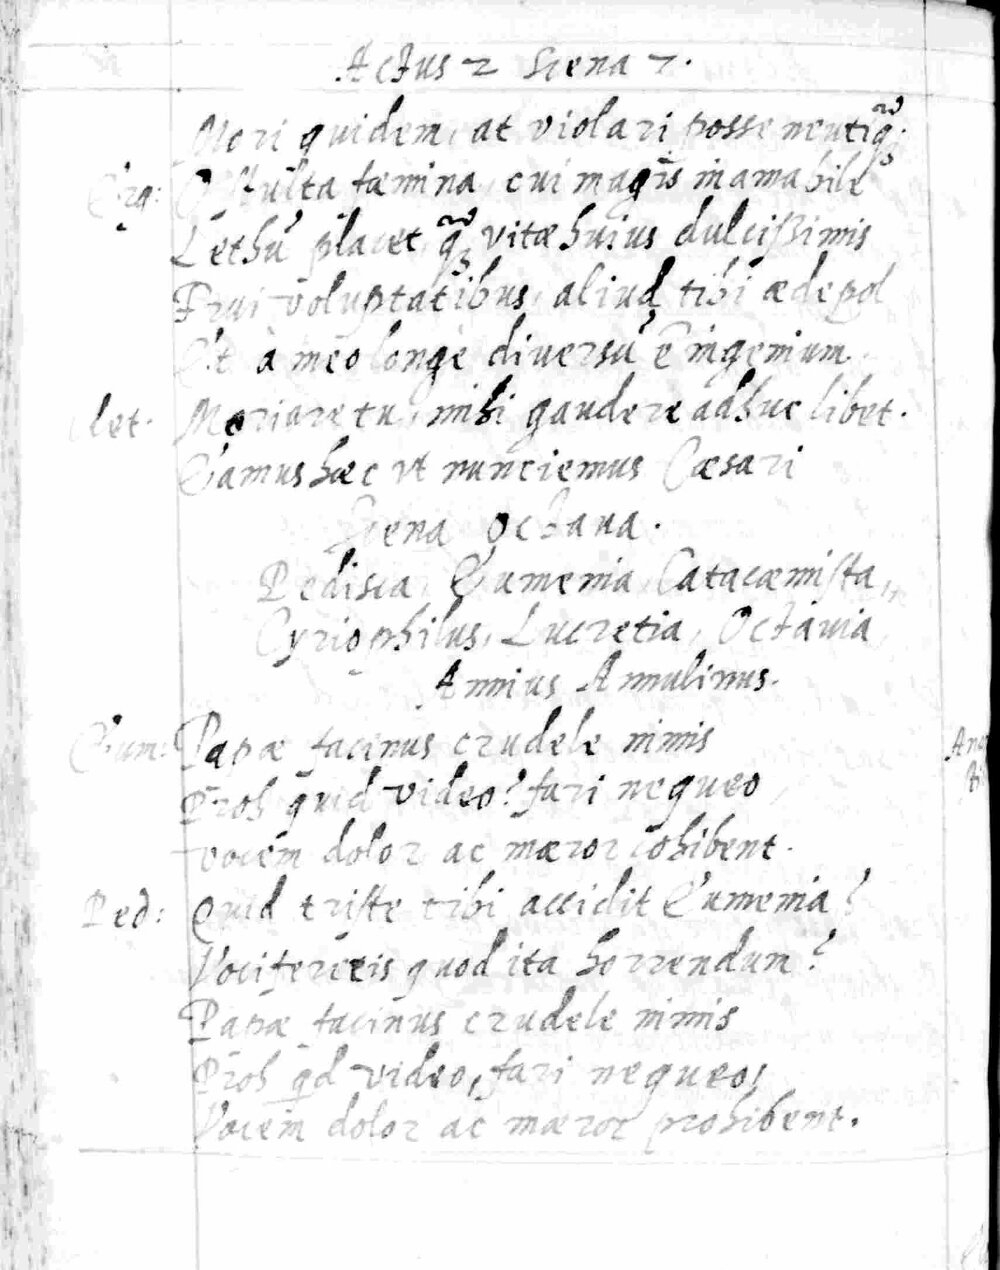 Actus 2 Scena 7.
Mori quidem, at violari posse neutiq̃.
Erg: O stulta fæmina, cui magis inamabile
Lethū placet, q̃ȝ vitæ huius dulcißimis
Frui voluptatibus, aliud tibi ædepol
Et à meo longè diversū ē ingenium.
let. Moriare tu, mihi gaudere adhuc libet.
Eamus hæc vt nunciemus Cæsari
Scena Octaua.
Pedisca, Eumenia, Catacœmista,
Cyriophilus, Lucretia, Octauia
Annius Annulinus.
Eum: Papæ facinus crudele nimis
Proh quid video? fari nequeo
vocem dolor ac mæror cohibent.
Ped: Quid triste tibi accidit Eumenia?
Vocifereris quod ita horrendum?
Papæ facinus crudele nimis
Proh qd video, fari nequeo,
Vocem dolor ac mæror prohibent.